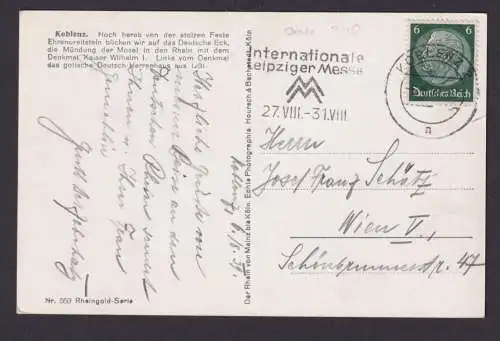 Koblenz. Noch herab von der stolzen Feste
Ehrenbreitstein blicken wir auf das Deutsche Eck,
die Mündung der Mosel in den Rhein mit dem
Denkmal Kaiser Wilhelm I. Links vom Denkmal
das gotische Deutsch Herrenhaus aus 1291.
Herzliche Grüße von
meiner Reise an den
Deutschen Rhein sendet
Ihnen u. Ihrer Frau
Gemahlin
Nr. 553 Rheingold-Serie
Der Rhein von Mainz bis Köln. Echte Photographie Hoursch & Bechstedt, Köln
Internationale
Leipziger Messe
27.VIII.-31.VIII.
KOBLENZ
n
6 6
Deutsches Reich
Herrn
Josef Franz Schütz
Wien V.,
Schönbrunnerstr. 47